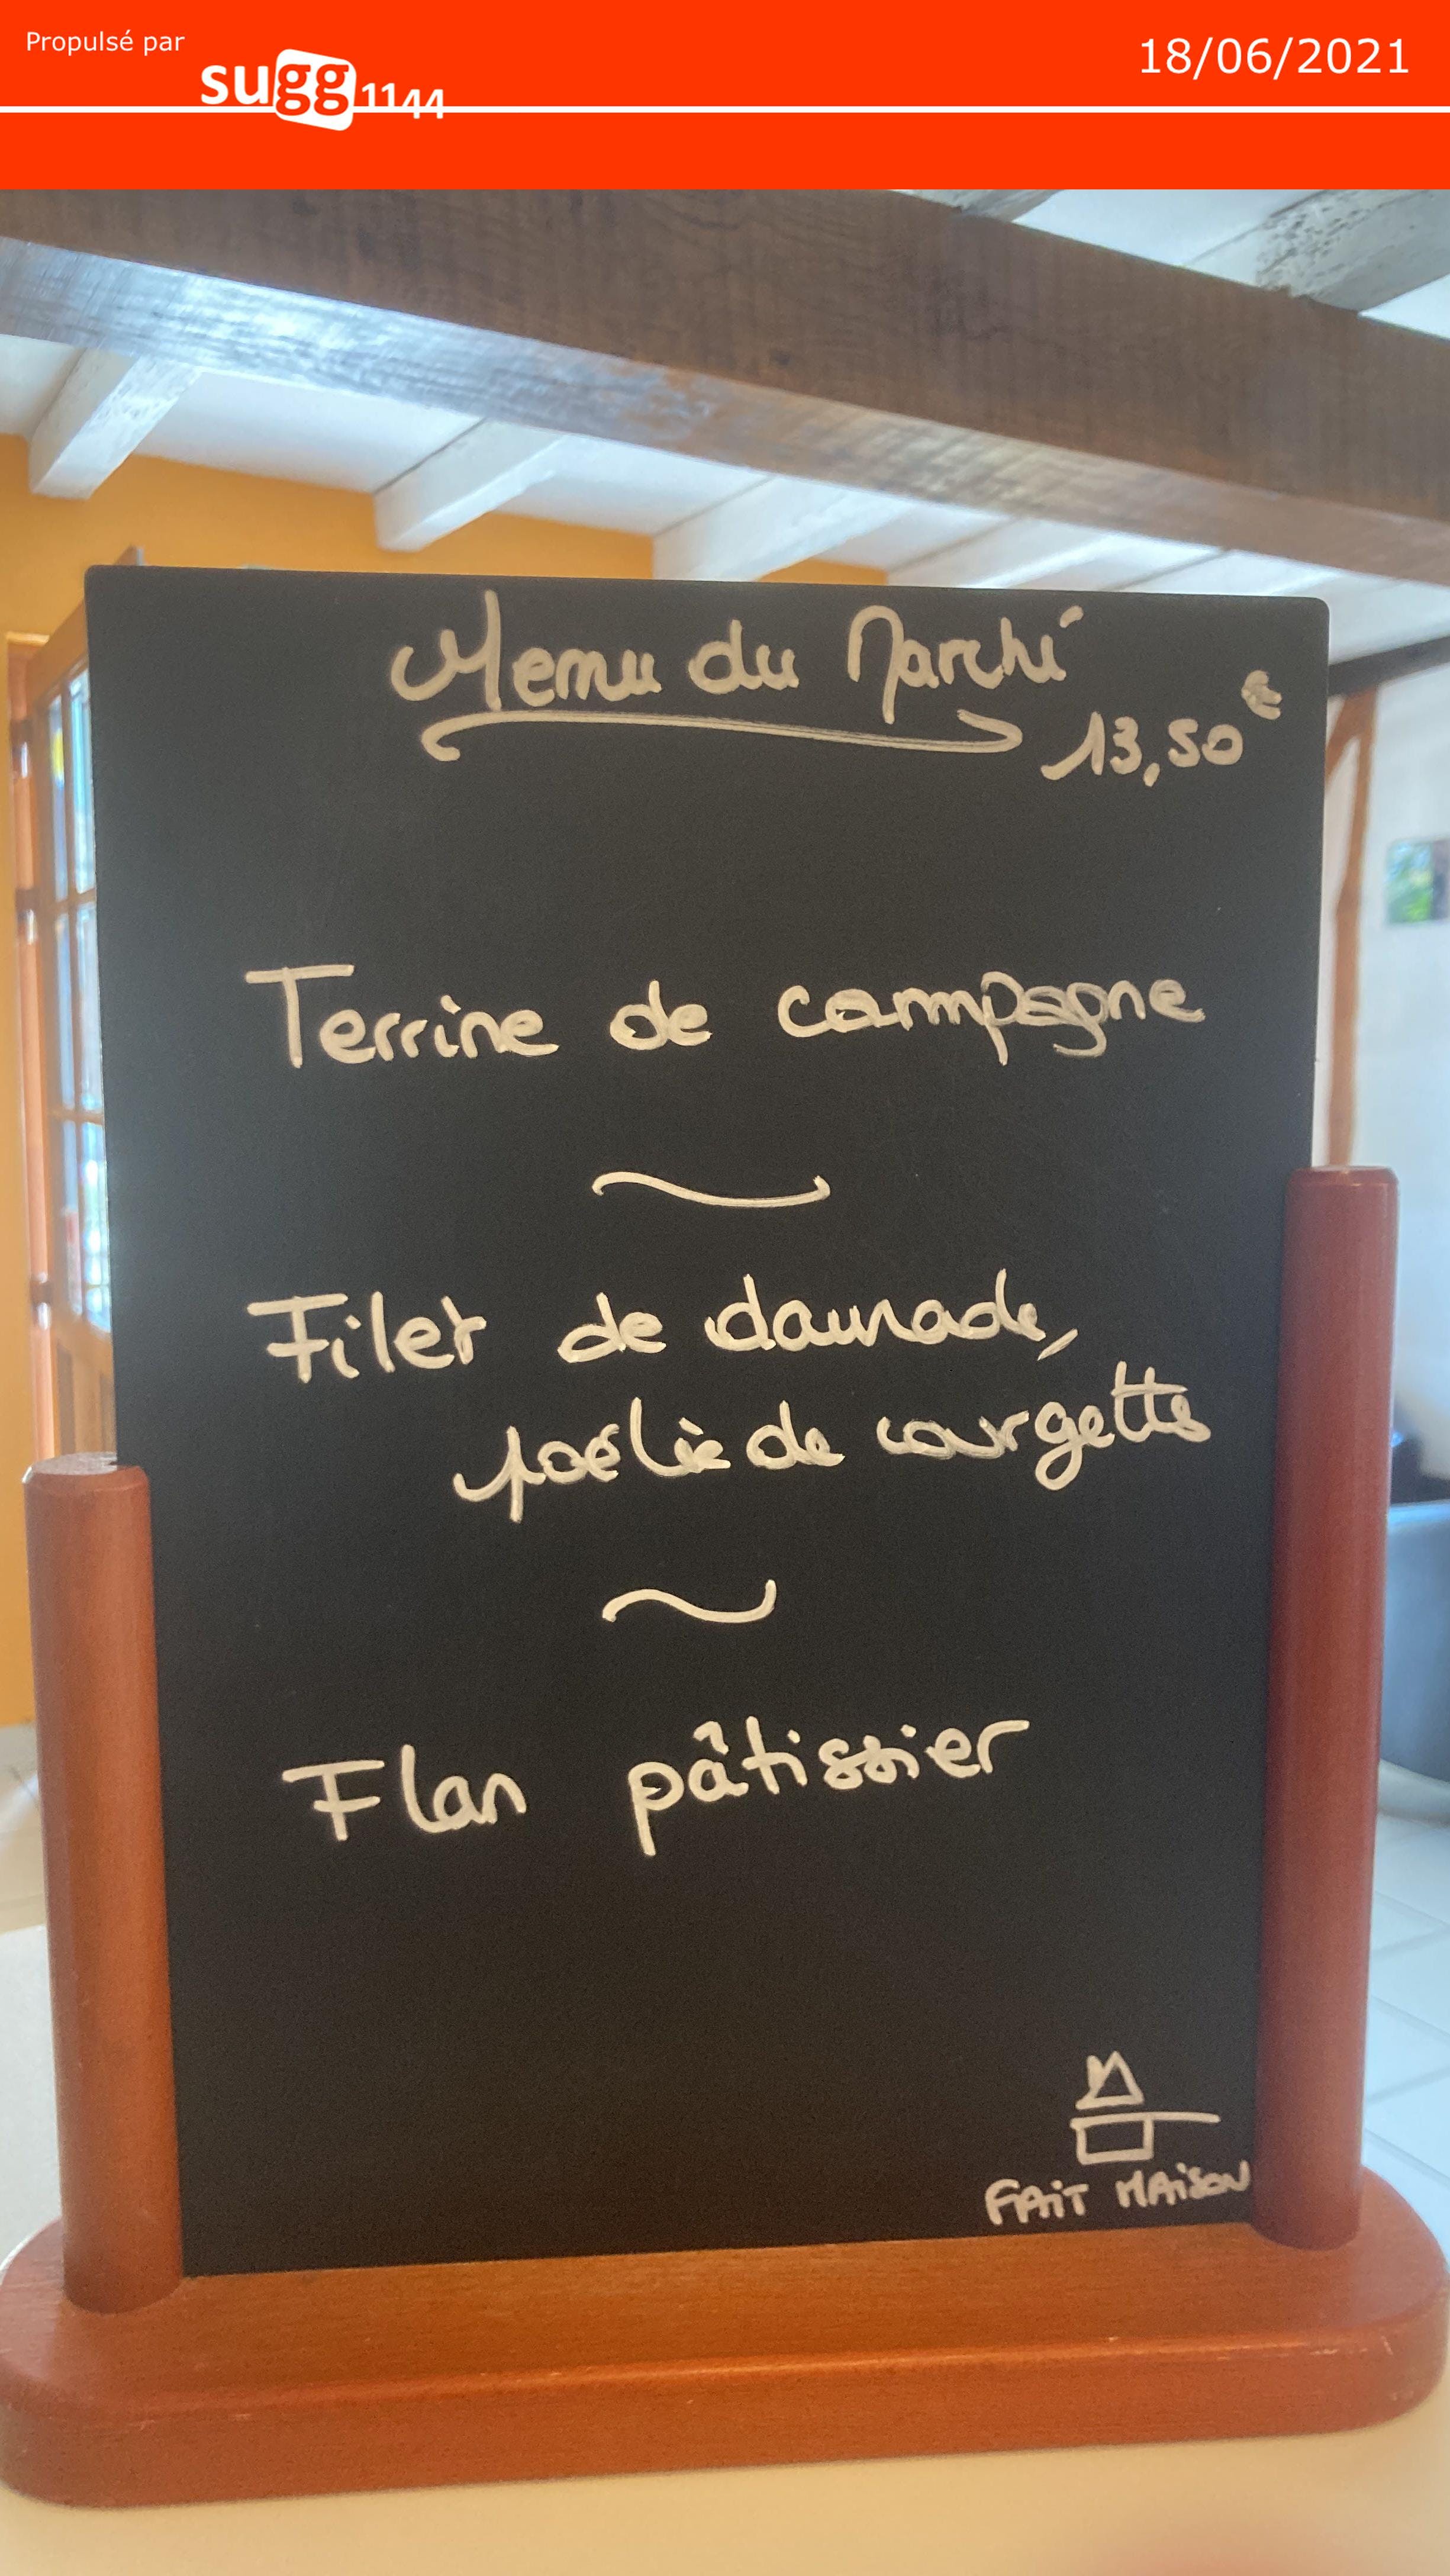 Propulsé par
sugg1144
18/06/2021
Menu du Marché
13,50€
Terrine de campagne
Filet de daurade,
poêlée de courgettes
Flan pâtissier
FAIT MAISON